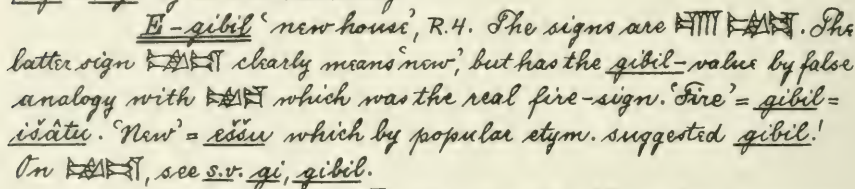 E-gibil 'new house', R.4. The signs are 𒂍 𒉋. The
latter sign 𒉋 clearly means 'new', but has the gibil-value by false
analogy with which was the real fire-sign. 'Fire' = gibil =
išâtu. 'New' = eššu which by popular etym. suggested gibil!
On 𒉋, see s.v. gi, gibil.